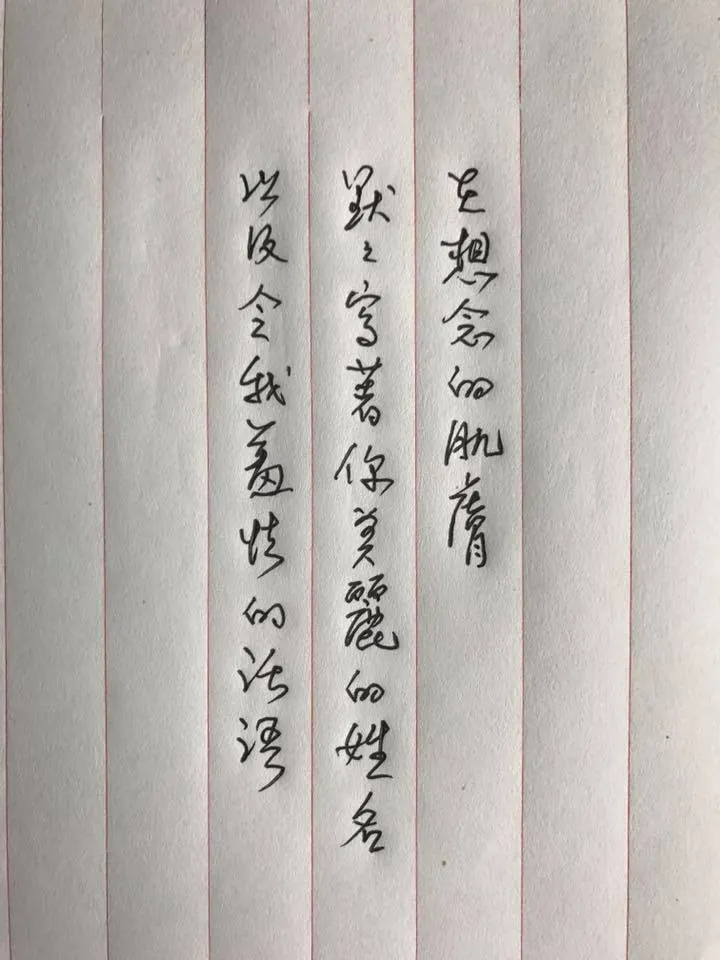 在想念的肌膚
默默寫著你美麗的姓名
以及令我羞怯的話語